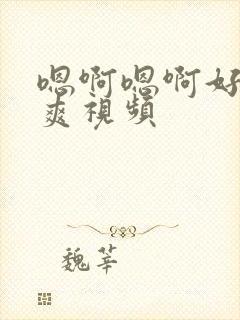 嗯啊嗯啊好
爽視頻
魏莘